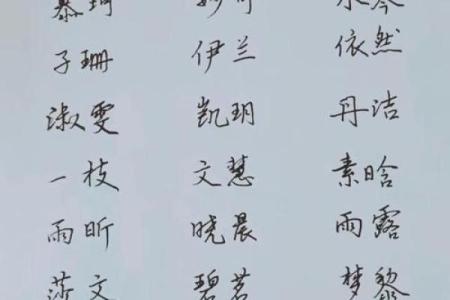 慕珂 妙可 水岑
子珊 伊兰 依然
淑雯 凯玥 丹洁
一枝 文慧 素晗
雨昕 晓晨 雨露
文 碧茗 梦黎